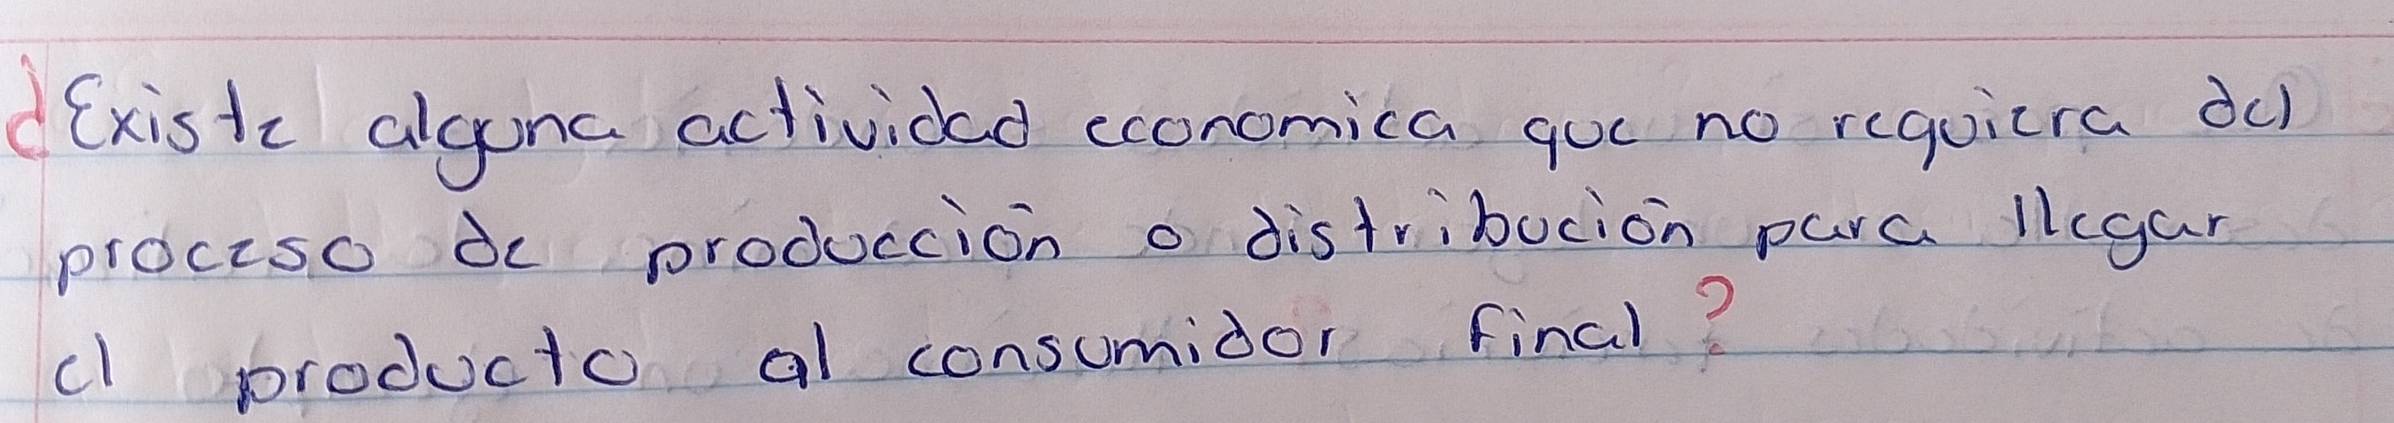 ¿Existe alguna actividad economica que no requiera del
proceso de producción o distribución para llegar
el producto al consumidor final?